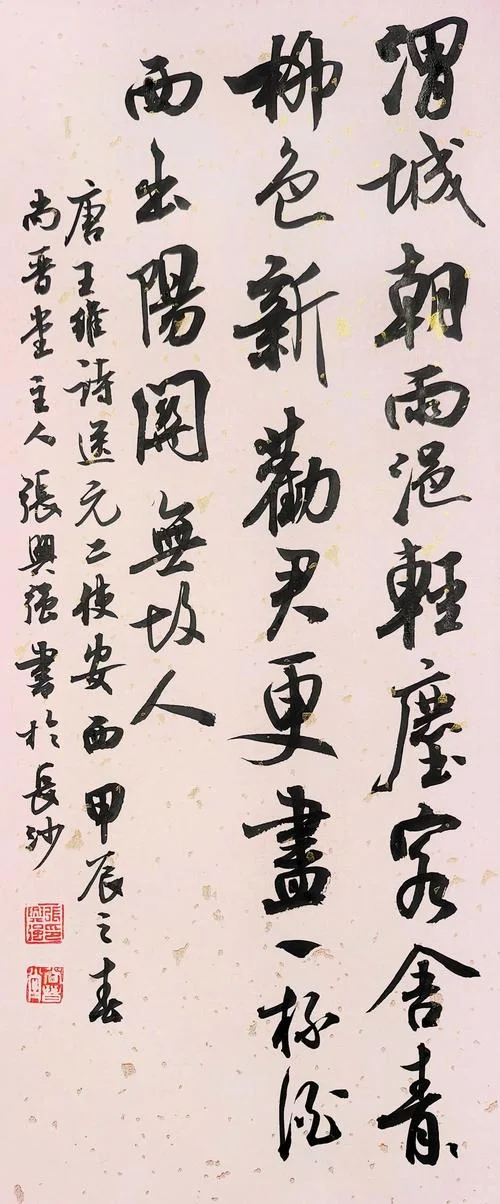 渭城朝雨浥輕塵客舍青々
柳色新勸君更盡一杯酒
西出陽關無故人
唐王維詩送元二使安西甲辰之春
尚晉堂主人張興强書於長沙